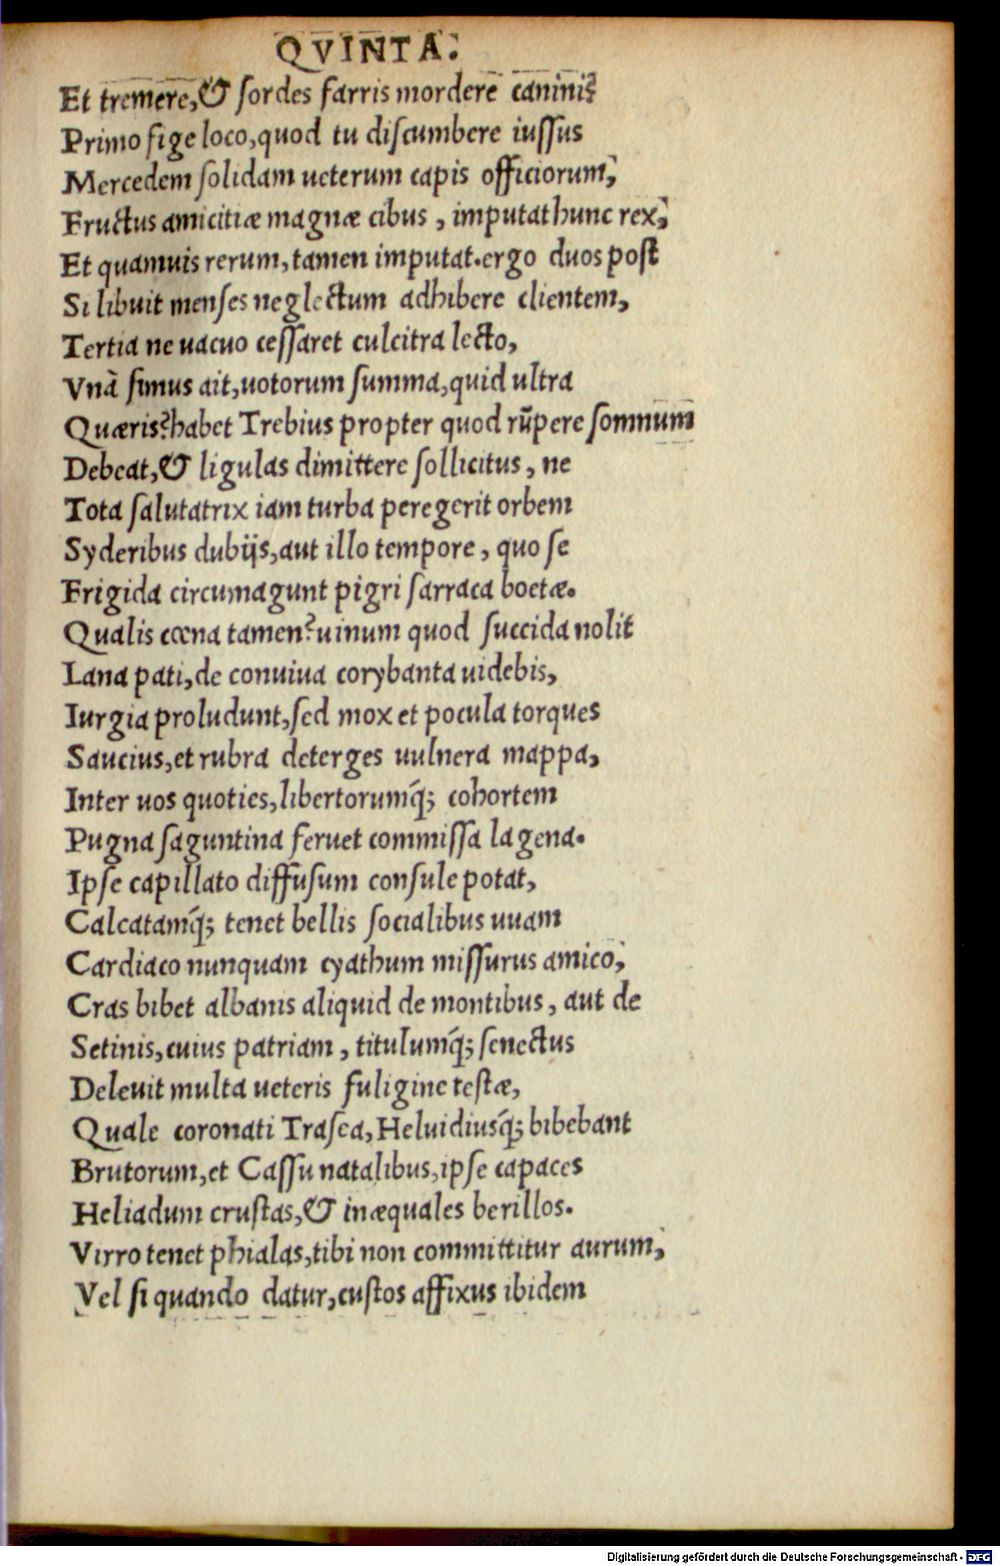 QVINTA.
Et tremere, & sordes farris mordere canini?
Primo fige loco, quod tu discumbere iussus
Mercedem solidam ueterum capis officiorum,
Fructus amicitiæ magnæ cibus, imputat hunc rex,
Et quamuis rerum, tamen imputat. ergo duos post
Si libuit menses neglectum adhibere clientem,
Tertia ne uacuo cessaret culcitra lecto,
Vnā simus ait, uotorum summa, quid ultra
Quæris? habet Trebius propter quod rūpere somnum
Debeat, & ligulas dimittere sollicitus, ne
Tota salutatrix iam turba peregerit orbem
Syderibus dubijs, aut illo tempore, quo se
Frigida circumagunt pigri sarraca boetæ.
Qualis cœna tamen? uinum quod succida nolit
Lana pati, de conuiua corybanta uidebis,
Iurgia proludunt, sed mox et pocula torques
Saucius, et rubra deterges uulnera mappa,
Inter uos quoties, libertorumq́; cohortem
Pugna saguntina feruet commissa lagena.
Ipse capillato diffusum consule potat,
Calcatamq́; tenet bellis socialibus uuam
Cardiaco nunquam cyathum missurus amico,
Cras bibet albanis aliquid de montibus, aut de
Setinis, cuius patriam, titulumq́; senectus
Deleuit multa ueteris fuligine testæ,
Quale coronati Trasea, Heluidiusq́; bibebant
Brutorum, et Cassii natalibus, ipse capaces
Heliadum crustas, & inæquales berillos.
Virro tenet phialas, tibi non committitur aurum,
Vel si quando datur, custos affixus ibidem
Digitalisierung gefördert durch die Deutsche Forschungsgemeinschaft - DFG